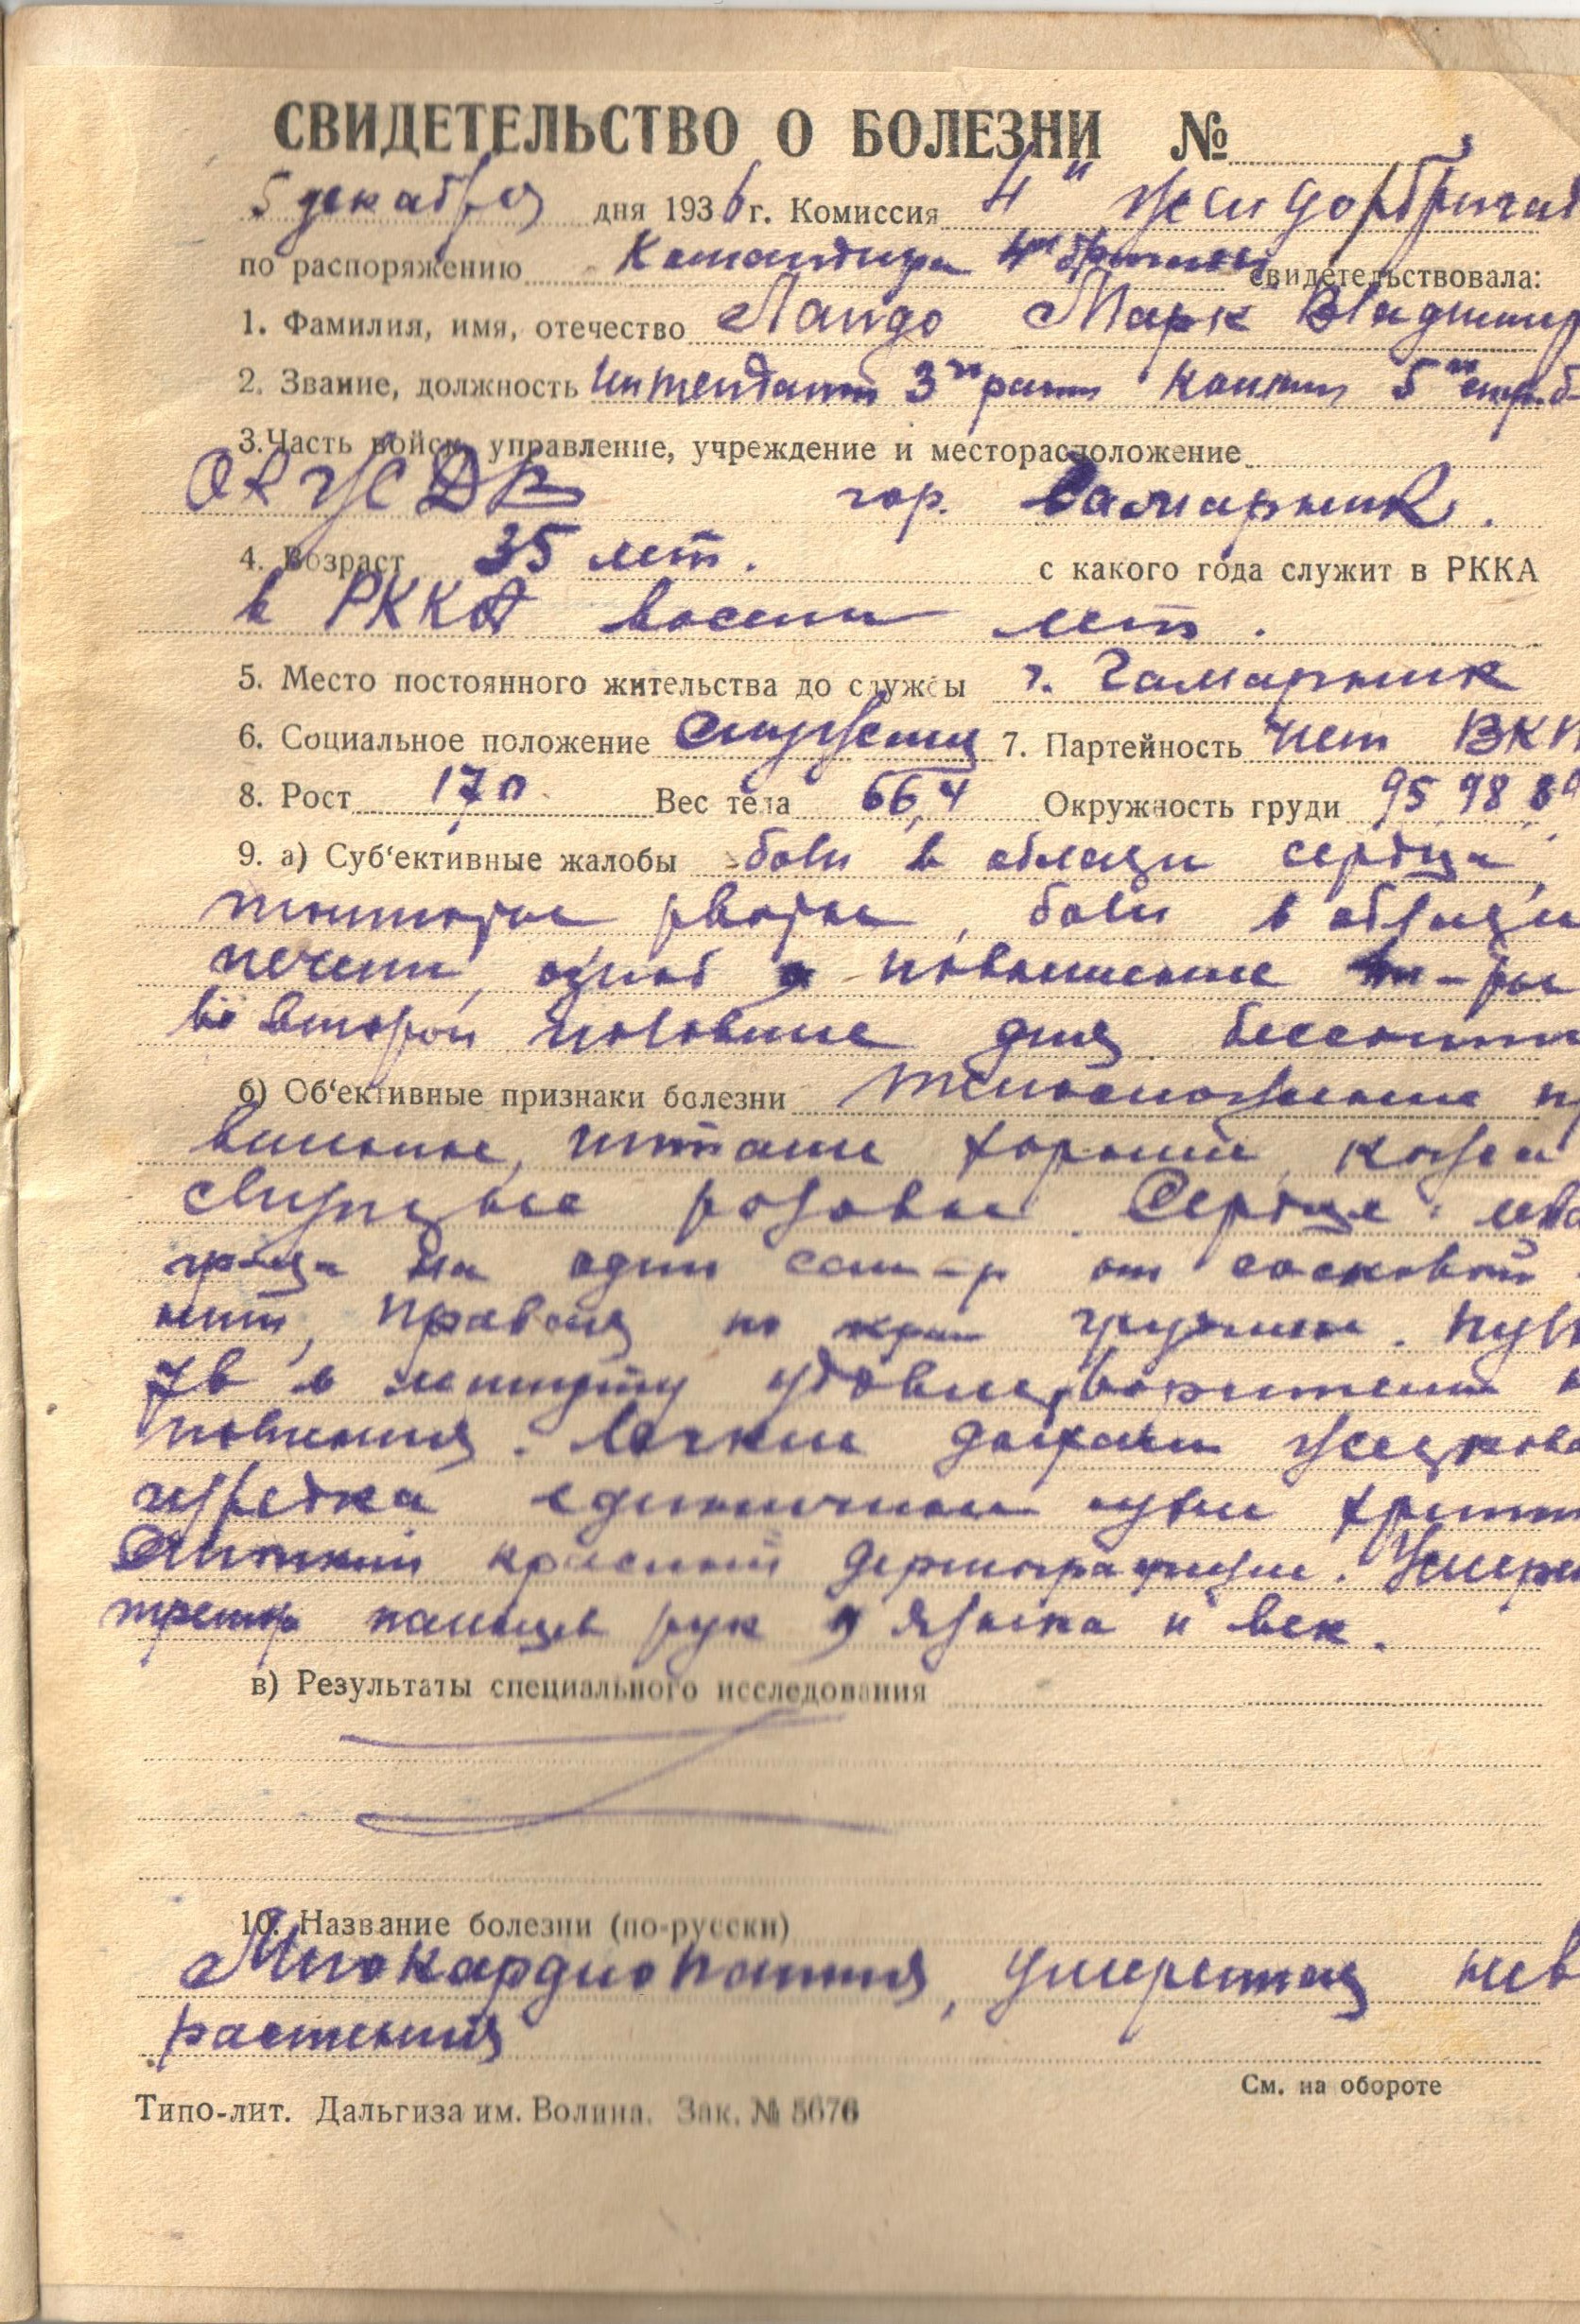 СВИДЕТЕЛЬСТВО О БОЛЕЗНИ №
5 декабря дня 1936 г. Комиссия 4й желдорбригад
по распоряжению Командира 4й бригады свидетельствовала:
1. Фамилия, имя, отечество Ландо Марк Владимир
2. Звание, должность Интендант 3го ранга 5го
3. Часть войск, управление, учреждение и месторасположение
ОКЖДВ гор. Гамарник.
4. Возраст 35 лет. с какого года служит в РККА
в РККА восемь лет.
5. Место постоянного жительства до службы г. Гамарник
6. Социальное положение Служащ 7. Партейность член ВКП
8. Рост 170 Вес тела 66,4 Окружность груди 95 98 89
9. а) Суб‘ективные жалобы боли в области сердца,
рвота, боли в области
печени, озноб и повышение т-ры
во второй половине дня бессонни
б) Об‘ективные признаки болезни Телосложение пр
вильное, питание хорошее, кожа и
слизистые розовые. Сердце: лева
граница на один сант-р от сосковой
нии, правая по краю грудины. Пуль
78 в минуту удовлетворительн
полнения. Легкие дыхание жестков
изредка единичные сухие хрипы
Стойкий красный дермографизм. Умерен
тремор пальцев рук, языка и век.
в) Результаты специального исследования
10. Название болезни (по-русски)
Миокардиопатия, умеренная нев
растения
См. на обороте
Типо-лит. Дальгиза им. Волина. Зак. № 5676